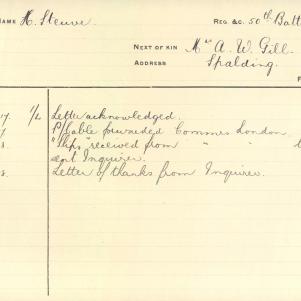 NAME H. Steuve. REG &C. 50th Batt
NEXT OF KIN Mrs A. W. Gill
ADDRESS Spalding.
17. 1/2 Letter acknowledged.
P/Cable forwarded Commrs London
8. "Slips" received from " " t
sent Inquirer.
8. Letter of thanks from Inquirer.